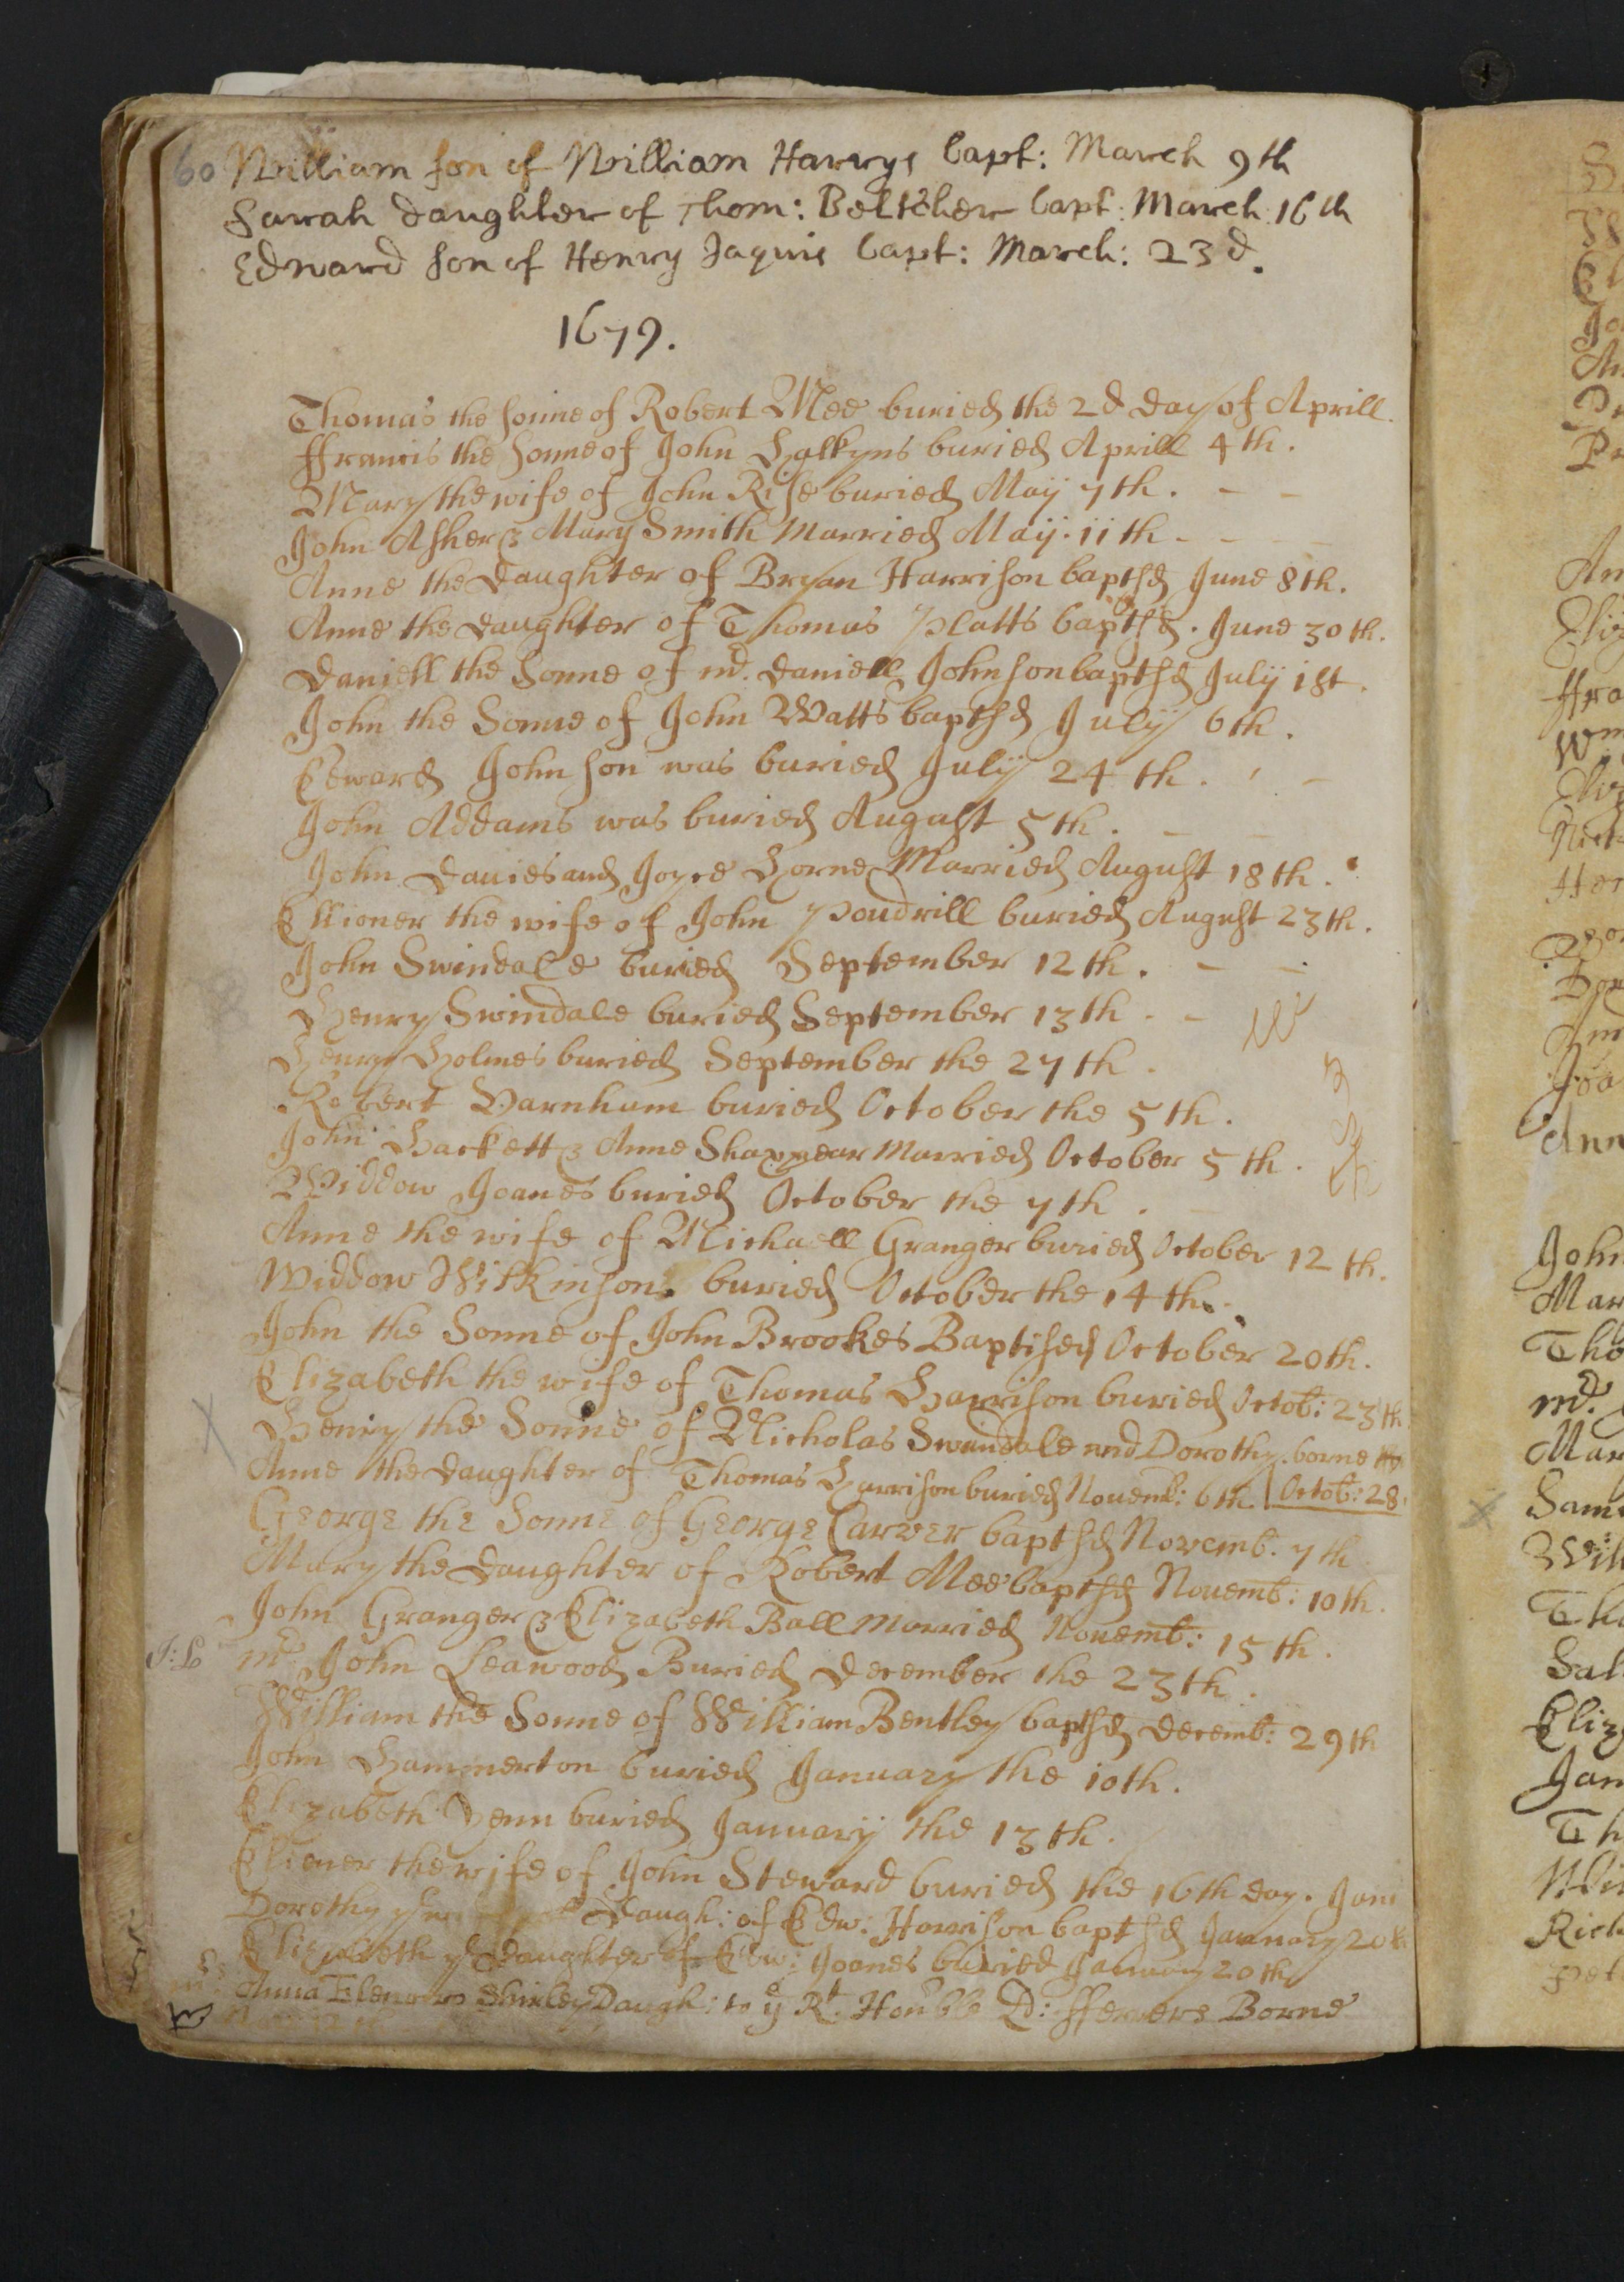 60 William son of William Harrys bapt: March 9th
Sarah daughter of Thom: Beltcher bapt: March 16th
Edward son of Henry Jaquis bapt: March: 23d.
1679.
Thomas the sonne of Robert Mee buried the 2d day of Aprill.
ffrancis the sonne of John Halkyns buried Aprill 4th.
Mary the wife of John Rise buried Maij 7th.
John Asher & Mary Smith Married Maij. 11th
Anne the daughter of Bryan Harrison baptsd June 8th.
Anne the daughter of Thomas Platts baptsd. June 30th.
Daniell the Sonne of mr. Daniell Johnson baptsd July 1st.
John the Sonne of John Watts baptsd July 6th.
Edward Johnson was buried July 24th.
John Addams was buried August 5th.
John Davies and Joyce Horne Married August 18th.
Ellioner the wife of John Poudrill buried August 23th.
John Swindale buried September 12th.
Henry Swindale buried September 13th.
Henry Holmes buried September the 27th.
Robert Varnham buried October the 5th.
John Hackett & Anne Shaxpear Married October 5th.
Widdow Joanes buried October the 7th.
Anne the wife of Michaell Granger buried October 12th.
Widdow Wilkinson buried October the 14th.
John the Sonne of John Brookes Baptised October 20th.
Elizabeth the wife of Thomas Harrison buried Octob: 23th
Henry the Sonne of Nicholas Swindale and Dorothy. borne
Anne the daughter of Thomas Harrison buried Novemb: 6th Octob: 28.
George the Sonne of George Carver baptsd Novemb. 7th
Mary the daughter of Robert Mee baptsd Novemb: 10th.
John Granger & Elizabeth Ball Married Novemb: 15th.
J: L mr John Leawood Buried December the 23th.
William the Sonne of William Bentley baptsd Decemb: 29th
John Hammerton buried January the 10th.
Elizabeth Henn buried January the 13th.
Elioner the wife of John Steward buried the 16th day. Janu
Dorothy Daugh: of Edw: Harrison baptsd January 20th
Elizabeth ye Daughter of Edw: Joanes buried January 20th
Anna Elenora Shirley Daugh: to ye Rt. Honble Ld: fferrers Borne